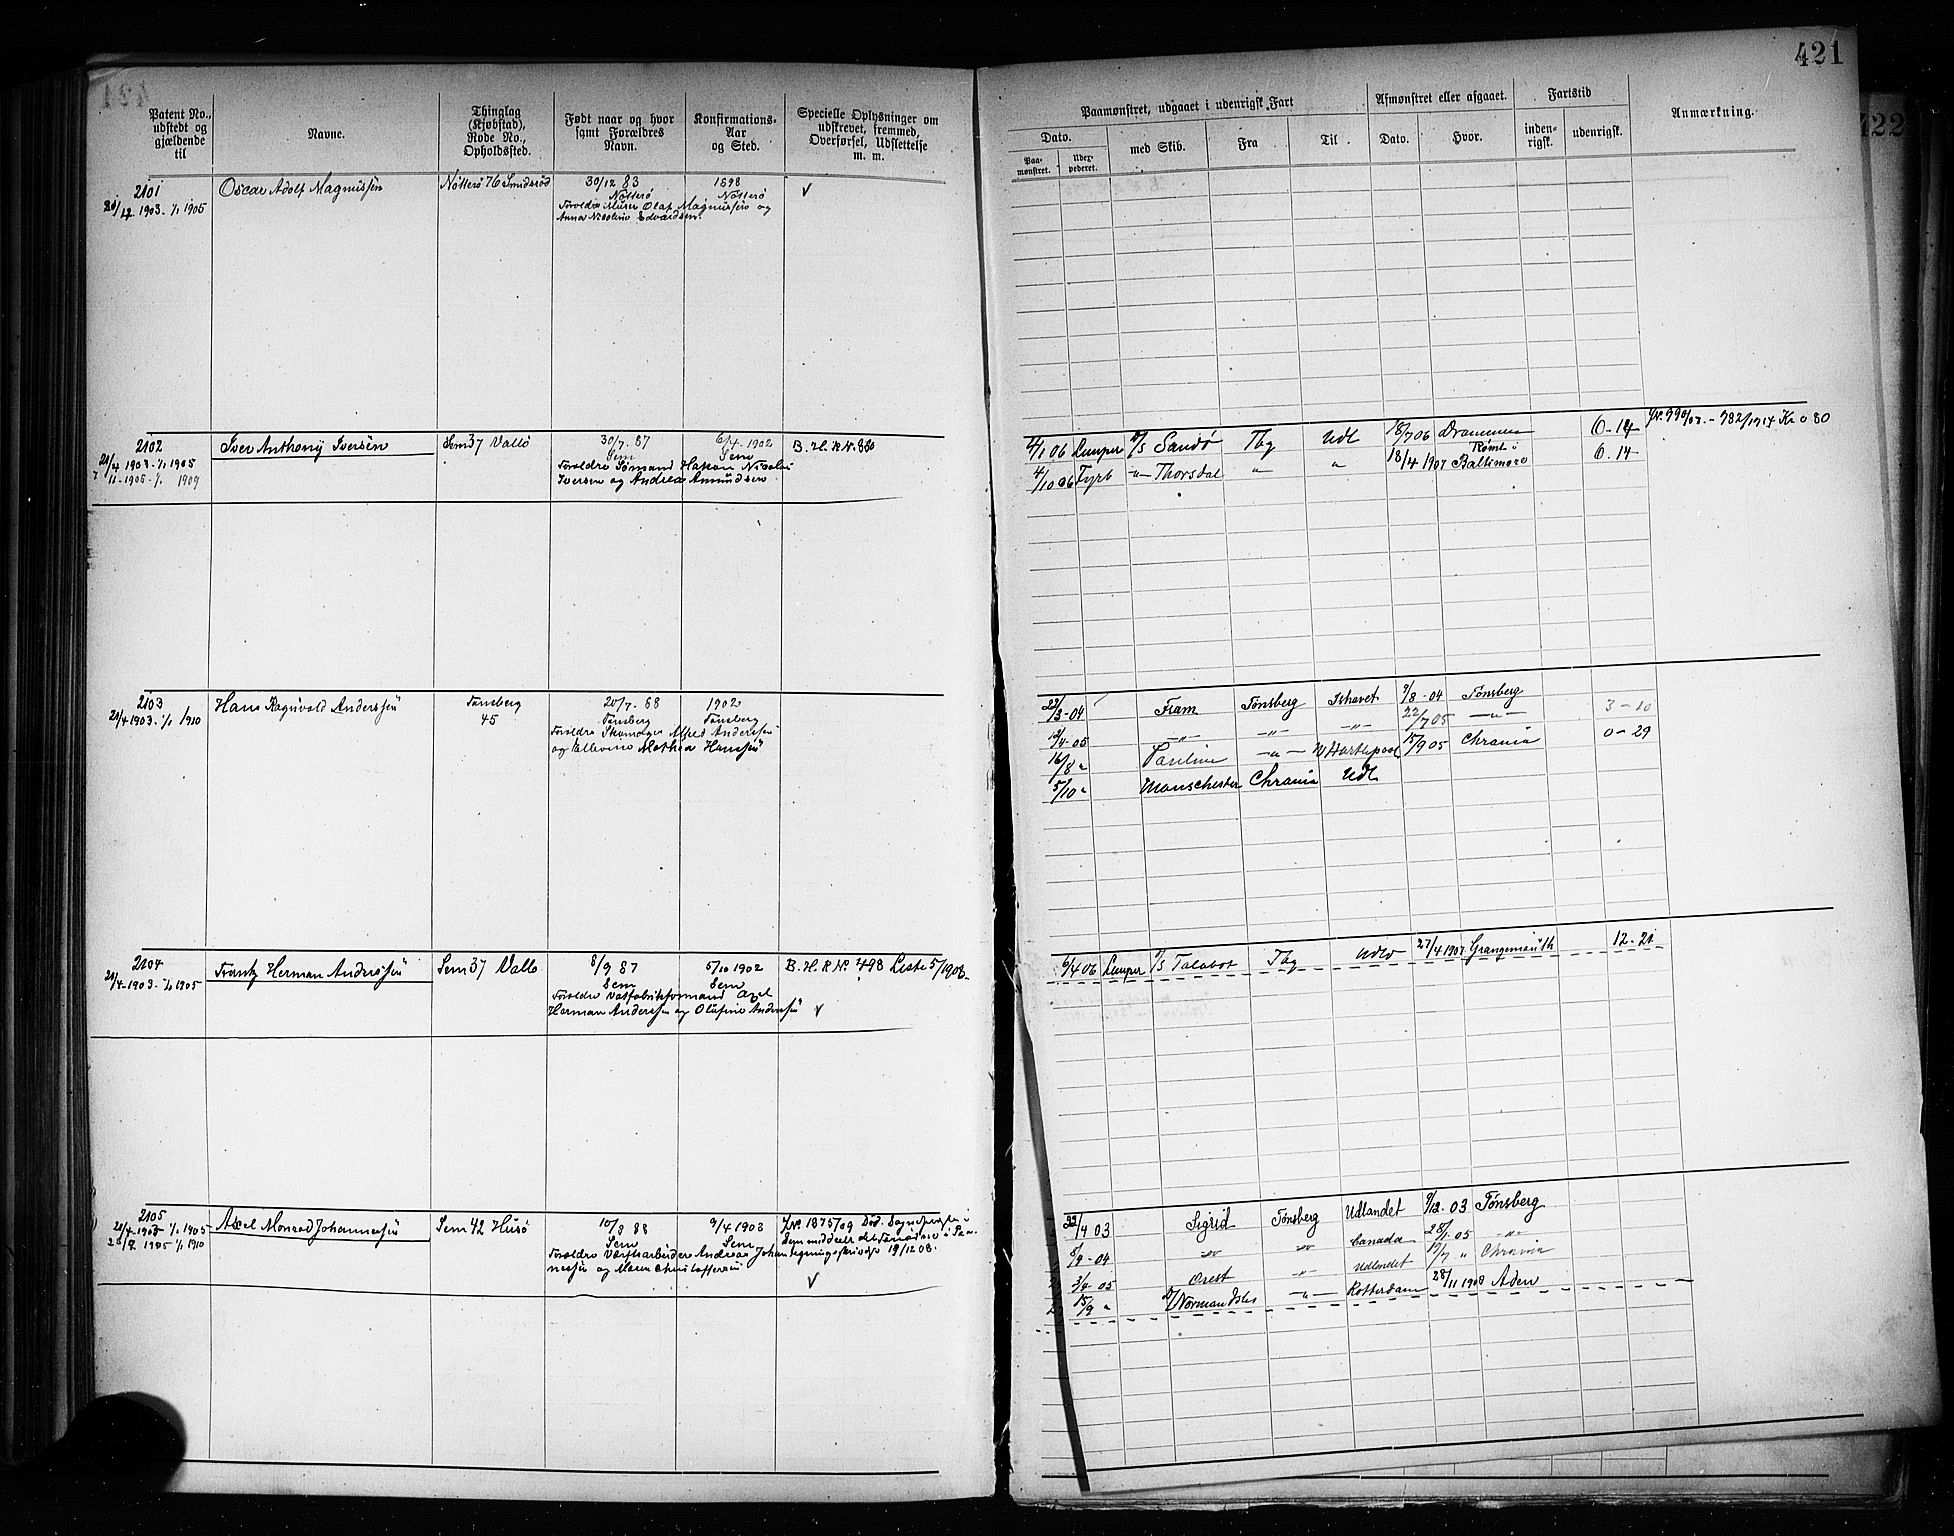 421
422
Patent No., udstedt og gjældende til
Navne.
Thinglag (Kjøbstad), Rode No., Opholdssted.
Født naar og hvor samt Forældres Navn.
Konfirmations-Aar og Sted.
Specielle Oplysninger om udskrevet, fremmed, Overførsel, Udslettelse m. m.
Paamønstret, udgaaet i udenrigsk Fart
Afmønstret eller afgaaet.
Fartstid
Anmærkning.
Dato.
Paa-mønstret.
Udex-pederet.
med Skib.
Fra
Til
Dato.
Hvor.
inden-rigsk.
udenrigsk.
2101
Oscar Adolf Magnussen
Nötterö 76 Smidsröd
30/12 83
1898
✓
1903. 1/1 1905
Nötterö
Nötterö
Forældre Murer Olaf Magnussen og
Anna Nicoline Edvardsen.
2102
Iver Anthonij Iversen
Sem 37 Vallö
30/7. 87
6/4. 1902
B. H. R. Nr.
21/4 1903. 1/1 1905
Sem
Sem
11-1905. 1/1 1909
Forældre Sömand Hakon Nicolai
Iversen og Andrea Amundsen
4/1 06 Lemper S/S Sandø Tbg Udl 18/7 06 Drammen 6-14
4/10 06 Fyrb -"- Thorsdal " " 18/4 1907 Rømt i Baltimore 6.14
2103
Hans Ragnvald Anderssen
Tønsberg
20/7. 88
1902
21/4 1903. 1/1 1910
45
Tønsberg
Tønsberg
Forældre Skomager Alfred Anderssen
og Mathea Hanssen
22/3-04 Fram Tönsberg Ishavet 9/8-04 Tönsberg
12/4-05 -"- -"- -"- 22/7 05 -"- 3-10
16/8 " Pauline -"- W Hartlepool 15/9 05 Chrania 0-29
5/10 " Manschester Chrania Udl
2104
Frantz Herman Anderssen
Sem 37 Vallö
8/9 87
5/10 1902
B. H. R. Nr. 498 Liste 5/1908.
21/4-1903. 1/1 1905
Sem
Sem
Forældre Valfabrikformand Axel
Herman Anderssen og Olafine Anderssen
✓
6/4 06 Lemper S/S Talabot Tbg Udld 27/4 1907 Grangemouth 12-21
2105
Axel Monrad Johannessen
Sem 42 Husö
10/8 88
9/4 1903
Jr. Nr. 1875/09 Död. Sognepresten i
21/4-1903 1/1 1905
Sem
Sem
Sem
1905 1/1 1910
Forældre Værftsarbeider Andreas Johan
nessen og Maren Christoffersen
19/12 08.
✓
22/4 03 Sigrid Tönsberg Udlandet 9/12. 03 Tönsberg
8/9-04 " " Canada 28/1. 05 "
3/4 05 Orest " Udlandet 19/7 " Chrania
15/9 " Normandsles -"- Rotterdam 28/11 1908 Aden